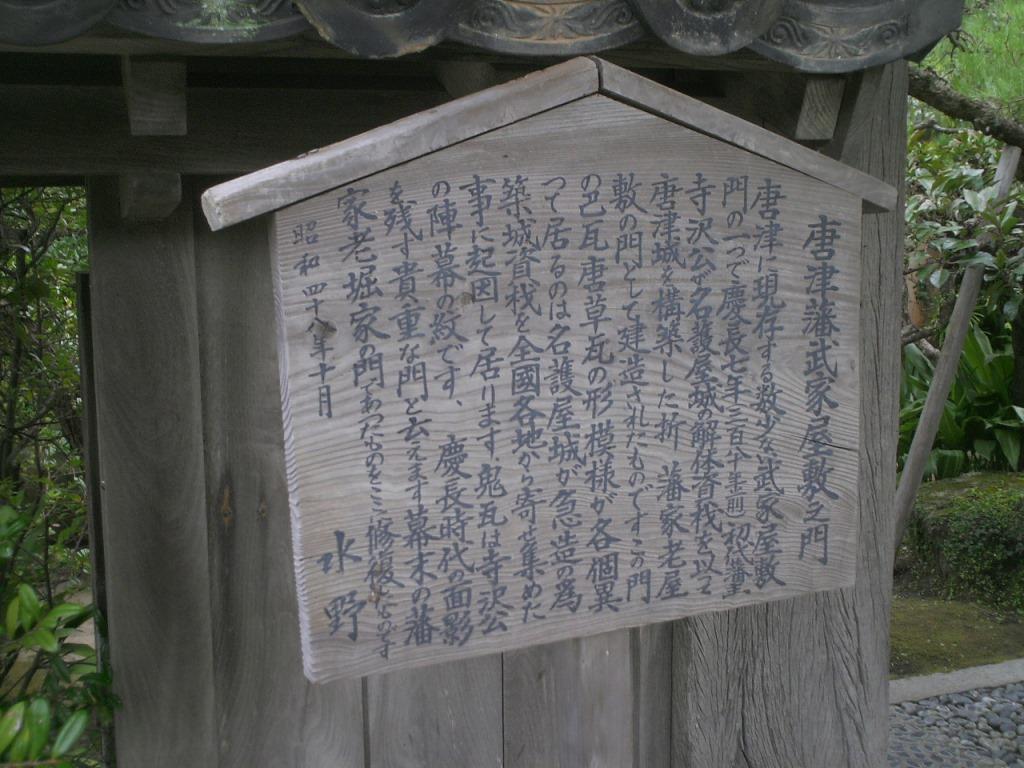 唐津藩武家屋敷之門
唐津に現存する数少な武家屋敷
門の一つで慶長七年三百八十年前初代藩主
寺沢公が名護屋城の解体資材を以て
唐津城を構築した折 藩家老屋
敷の門として建造されたものですこの門
の巴瓦唐草瓦の形模様が各個異
って居るのは名護屋城が急造の為
築城資材を全國各地から寄せ集めた
事に起因して居ります 鬼瓦は寺沢公
の陣幕の紋です、 慶長時代の面影
を残す貴重な門と云えます幕末の藩
家老堀家の門であったものをここに修復したのです
昭和四十八年十月 水野